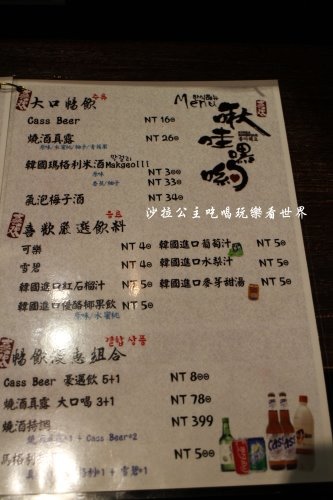 大口暢飲 주류
Menu
啾哇嘿喲
Cass Beer NT 160
燒酒真露 NT 260
原味/水蜜桃/柚子/青蘋果
막걸리
韓國瑪格利米酒Makgeolli
原味 NT 300
NT 330
氣泡梅子酒 NT 340
沙拉公主吃喝玩樂看世界
喜歡嚴選飲料 음료
可樂 NT 40
韓國進口葡萄汁 NT 50
雪碧 NT 40
韓國進口水梨汁 NT 50
韓國進口紅石榴汁 NT 50
韓國進口麥芽甜湯 NT 50
韓國進口優酪椰果飲 NT 50
原味/水蜜桃
暢飲優惠組合
Cass Beer 豪邁飲 5+1 NT 800
燒酒真露 大口喝 3+1 NT 780
NT 399
+ Cass Beer*2
NT 500
+ 雪碧*1